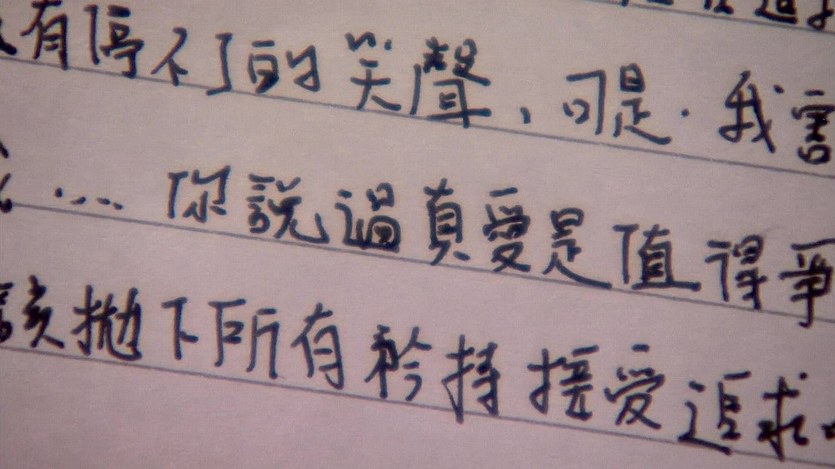 有停不了的笑聲,可是.我害
....你說過真愛是值得爭
該拋下所有矜持接受追求。